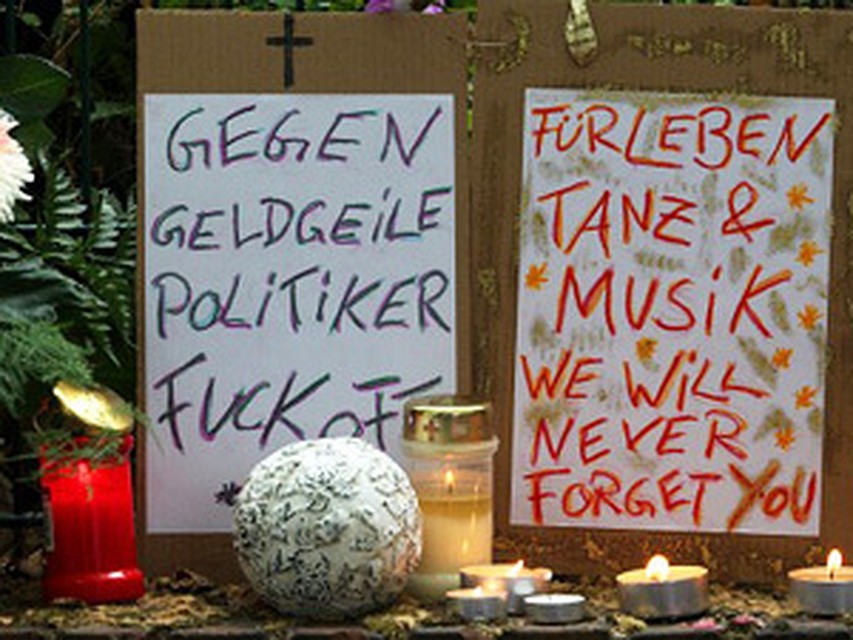 GEGEN
GELDGEiLE
POLiTiKER
FUCK OFF
FÜR LEBEN
TANZ &
MUSiK
WE WiLL
NEVER
FORGET YOU